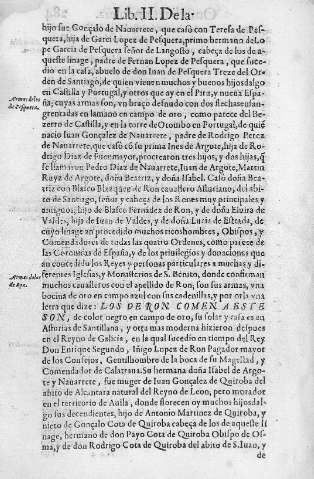 Lib. II. De la
hijo fue Gonçalo de Nauarrete, que casò con Teresa de Pes-
quera, hija de Garci Lopez de Pesquera, primo hermano de Lo
pe Garcia de Pesquera señor de Langosto, cabeça de los de a-
queste linage, padre de Fernan Lopez de Pesquera, que suce-
dio en la casa, abuelo de don Iuan de Pesquera Treze del Or-
den de Santiago, de quien vienen muchos y buenos hijosdalgo
en Castilla y Portugal, y otros que ay en el Piru, y nueua España
Armas de los
de Pesquera.
ña; cuyas armas son, vn braço desnudo con dos flechas ensan-
grentadas en la mano en campo de oro, como parece del Be-
zerro de Castilla, y en la torre de Otombo en Portugal, de quien
nacio Iuan Gonçalez de Nauarrete, padre de Rodrigo Perez
de Nauarrete, que casò cō su prima Ines de Argote, hija de Ro-
drigo Diaz de fuenmayor, procrearon tres hijos, y dos hijas, q̃
se llamarō Pedro Diaz de Nauarrete, Iuan de Argote, Martin
Ruyz de Argote, doña Beatriz, y doña Isabel. Casò doña Bea-
triz con Blasco Blazquez de Ron cauallero Asturiano, del abi-
to de Santiago, señor y cabeça de los Rones muy principales y
antiguos, hijo de Blasco Fernandez de Ron, y de doña Eluira de
Valdes, hija de Iuan de Valdes, y de doña Lucia de Estrada, de
cuyo linage an procedido muchos ricoshombres, Obispos, y
Comendadores de todas las quatro Ordenes, como parece de
las Coronicas de España, y de los priuilegios y donaciones que
an concedido los Reyes y personas particulares a muchas y di-
Armas de los
de Ron.
ferentes Iglesias, y Monasterios de S. Benito, donde confirman
muchos caualleros con el apellido de Ron; son sus armas, vna
bocina de oro en campo azul con sus cadenillas, y por orla vna
letra que dize: LOS DE RON COMEN A ESTE
SON, de color negro en campo de oro, su solar y casa es en
Asturias de Santillana, y otra mas moderna hizieron despues
en el Reyno de Galicia, en la qual sucedio en tiempo del Rey
Don Enrique Segundo, Iñigo Lopez de Ron Pagador mayor
de los Consejos, Gentilhombre de la boca de su Magestad, y
Comendador de Calatraua. Su hermana doña Isabel de Argo-
te y Nauarrete, fue muger de Iuan Gonçalez de Quiroba del
abito de Alcantara natural del Reyno de Leon, pero morador
en el territorio de Auila, donde florecen oy muchos hijosdal-
go sus decendientes, hijo de Antonio Martinez de Quiroba, y
nieto de Gonçalo Cota de Quiroba cabeça de los de aqueste li
nage, hermano de don Payo Cota de Quiroba Obispo de Os-
ma, y de don Rodrigo Cota de Quiroba del abito de S. Iuan, y
de